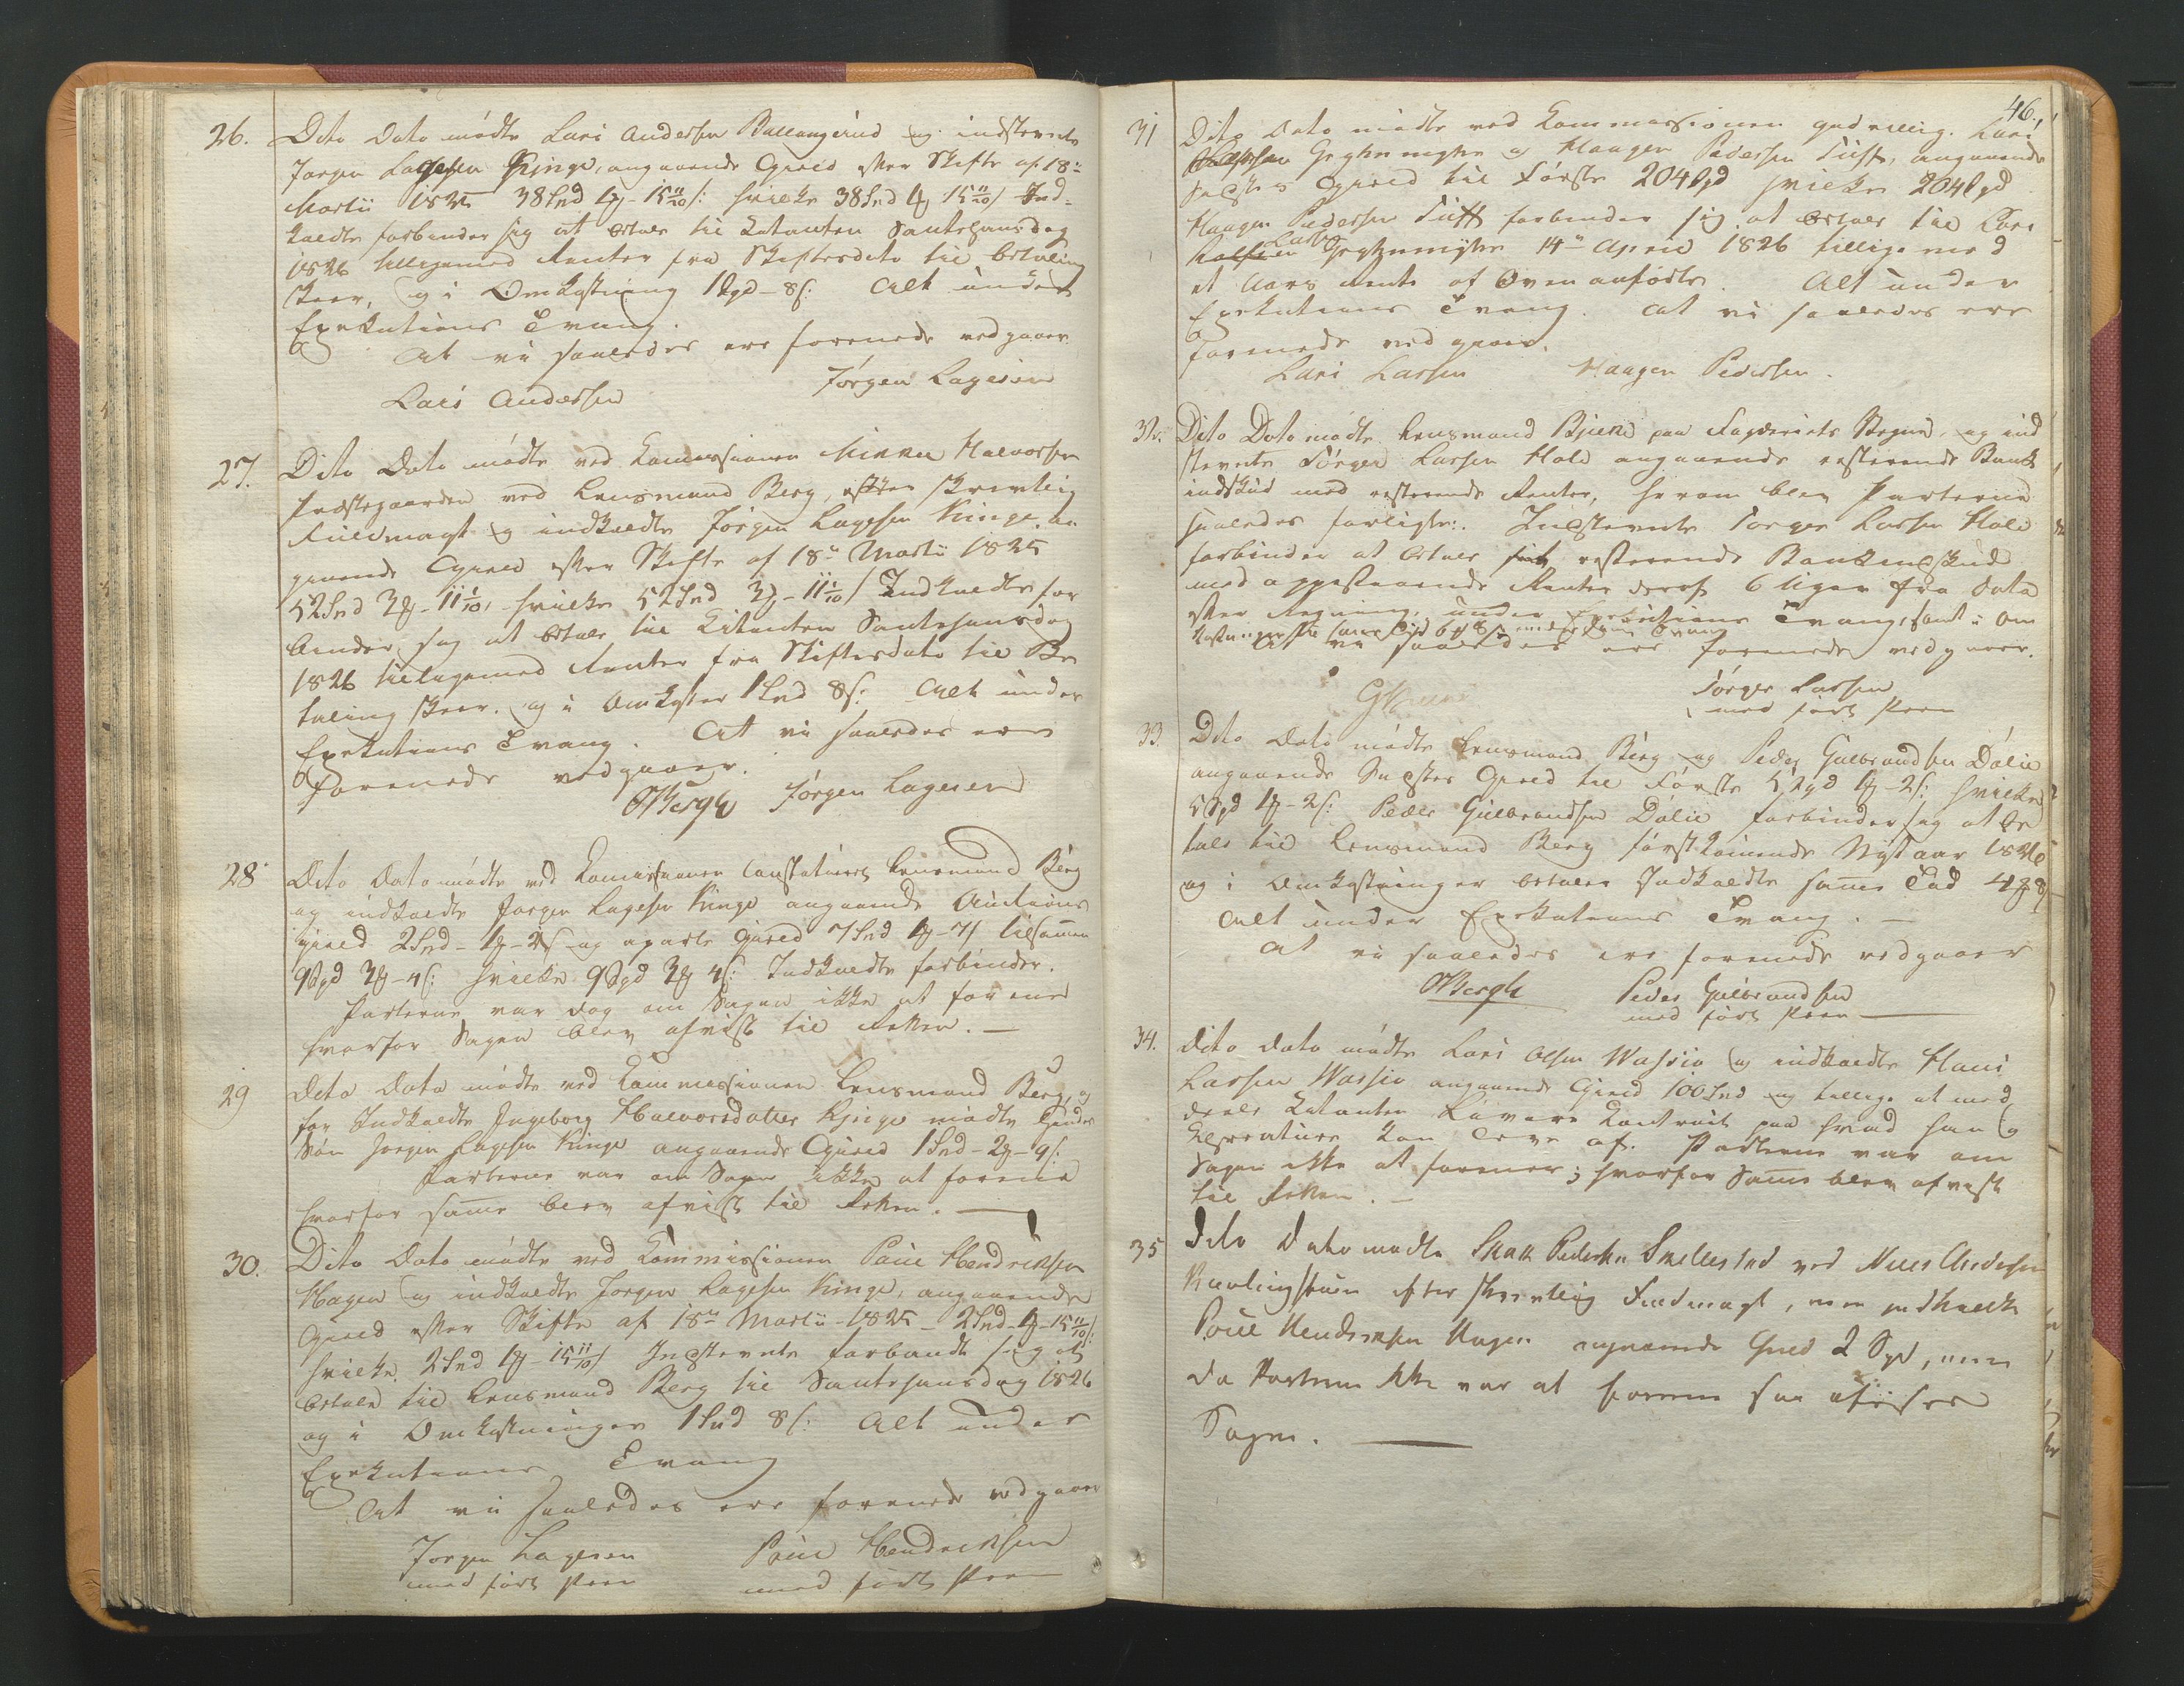 26. Dito Dato mødte Lars Andersen Ballangrud og indstevnte
Jørgen Lagesen Kinge, angaaende Gjæld efter Skifte af 18de
Martii 1825 38 Spd 1 # - 15 11/20 s: hvilke 38 Spd 1 # 15 11/20 s Ind-
kaldte forbinder sig at betale til Citanten Santehansdag
1826 tilligemed Renter fra Skiftesdato til betaling
skeer, og i Omkostning 1 Spd - 8 s: Alt under
Exekutions Tvang.
At vi saaledes ere forenede vedgaaer
Lars Andersen Jørgen Lagesen
27. Dito Dato mødte ved Commissionen Mikkel Halvorsen
Præstegaarden ved Lensmand Berg, efter skrivtlig
Fuldmagt og indkaldte Jørgen Lagesen Kinge, an
gaaende Gjæld efter Skifte af 18de Martii 1825
52 Spd 3 # - 11 1/10, hvilke 52 Spd 3 # - 11 1/10 s Indkaldte for
binder sig at betale til Citanten Santehansdag
1826 tilligemed Renter fra Skiftesdato til Be
taling skeer. og i Omkoster 1 Spd 8 s: Alt under
Exekutions Tvang. At vi saaledes ere
forenede vedgaaer.
OBergh Jørgen Lagesen
28 Dito Dato mødte ved Commissionen constitueret Lensmand Berg
og indkaldte Jørgen Lagesen Kinge angaaende Auctions
gjæld 2 Spd - 1 # - 21 s og aparte Gjæld 7 Spd 1 # - 7 s tilsammen
9 Spd 3 # - 4 s: hvilke 9 Spd 3 # 4 s: Indkaldte forbinder.
Parterne var dog om Sagen ikke at forene
hvorfor Sagen blev afvist til Retten. —
29 Dito Dato mødte ved Commissionen Lensmand Berg, og
for Indkaldte Ingeborg Halvorsdatter Kjinge mødte hendes
Søn Jørgen Lagesen Kinge angaaende Gjæld 1 Spd - 2 # - 9 s:
Parterne var om Sagen ikke at forene
hvorfor samme blev afvist til Retten. —
30. Dito Dato mødte ved Commissionen Poul Hendriksen
Hagen og indkaldte Jørgen Lagesen Kinge, angaaende
Gjæld efter Skifte af 18de Martii 1825 - 2 Spd - 1 # - 15 11/10 s:
hvilke 2 Spd 1 # - 15 11/10 s Indstevnte forbandt sig at
betale til Lensmand Berg til Santehansdag 1826
og i Omkostninger 1 Spd 8 s: Alt under
Exekutions Tvang
At vi saaledes ere forenede vedgaaer
Jørgen Lagesen Poul Hendriksen
med ført Pen med ført Pen
46.
31 Dito Dato mødte ved Commissionen godvillig Lars
og Haagen Pedersen Tuft, angaaende
Sidstes Gjæld til Første 204 Spd hvilke 204 Spd
Haagen Pedersen Tuft forbinder sig at betale til Lars
Larsen 14de April 1826 tillige med
et Aars Rente af Ovenanførte. Alt under
Exekutions Tvang. At vi saaledes ere
forenede vedgaaer.
Lars Larsen Haagen Pedersen.
32. Dito Dato mødte Lensmand paa Vegne, og ind
stevnte Tørger Larsen Hole angaaende resterende Bank
indskud med resterende Renter, herom blev Parterne
saaledes forligte: Indstevnte Torger Larsen Hole
forbinder at betale sit resterende Bankindskud
med opgaaende Renter deraf 6 Uger fra Dato
efter Regning, under Exekutions Tvang, samt i Om
kostninger til samme Tid under samme Tvang
At vi saaledes ere forenede vedgaaer.
Tørger Larsen
med ført Pen
33. Dito Dato mødte Lensmand Berg og Peder Gulbrandsen Dalie
angaaende Sidstes Gjæld til Første 5 Spd 1 # - 2 s: hvilke
5 Spd 1 # - 2 s: Peder Gulbrandsen Dalie forbinder sig at be
tale til Lensmand Berg førstkomende Nytaar 1826
og i Omkostninger betaler Indkaldte samme Tid 4 # 8 s
Alt under Exekutions Tvang. —
At vi saaledes ere forenede vedgaaer
OBergh Peder Gulbrandsen
med ført Pen —
34. Dito Dato mødte Lars Olsen Wassio og indkaldte Hans
Larsen Wassio angaaende Gjæld 100 Spd og tillige at med
deele Citanten Kontract paa hvad han og
kan leve af. Parterne var om
Sagen ikke at forene; hvorfor Samme blev afvist
til Retten. —
35 Dito Dato mødte Pedersen ved Niels Andersen
efter skrivtlig Fuldmagt, indkaldte
Poul Hendriksen Hagen angaaende Gjæld 2 Spd, men
da Parterne ikke var at forene saa afvises
Sagen. —